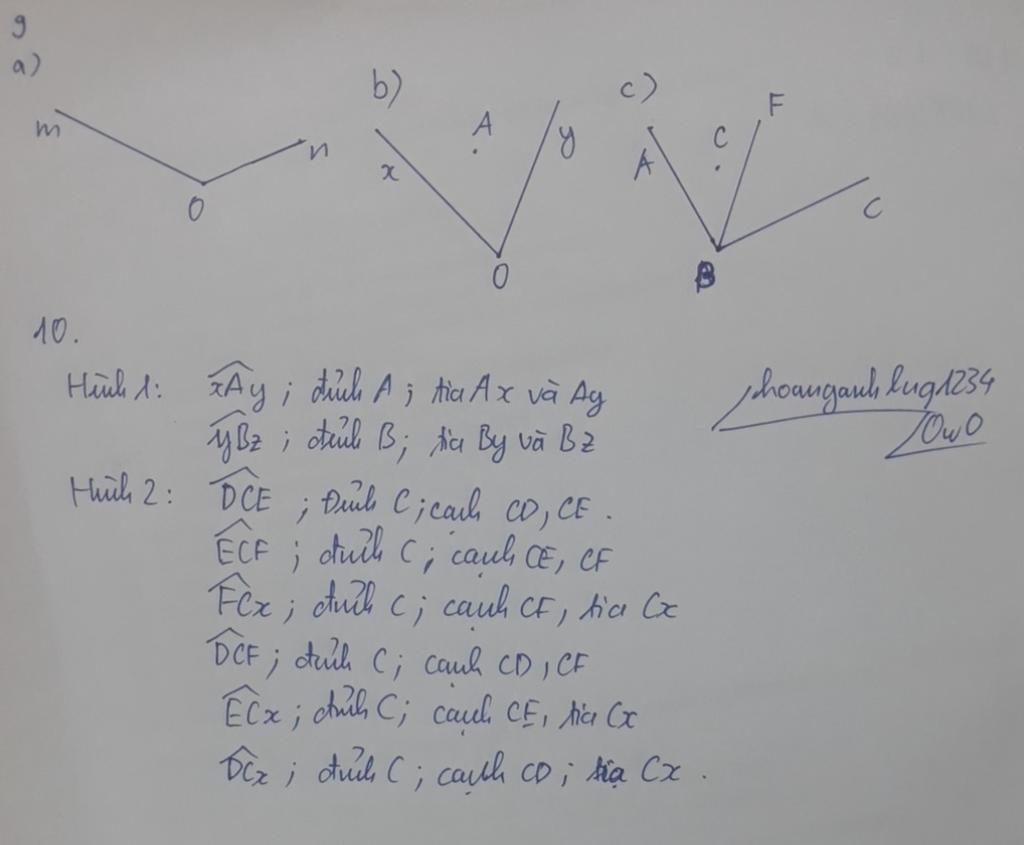 9
a)
m
O
n
b)
x
A
y
O
c)
A
C
F
B
C
10.
Hình 1: xAy ; đỉnh A ; tia Ax và Ay
yBz ; đỉnh B; tia By và Bz
hoanganhlug1234
OwO
Hình 2: DCE ; Đỉnh C; cạnh CD, CE.
ECF ; đỉnh C ; cạnh CE, CF
FCx ; đỉnh C ; cạnh CF, tia Cx
DCF ; đỉnh C; cạnh CD, CF
ECx ; đỉnh C; cạnh CE, tia Cx
DCx ; đỉnh C ; cạnh CD ; tia Cx .